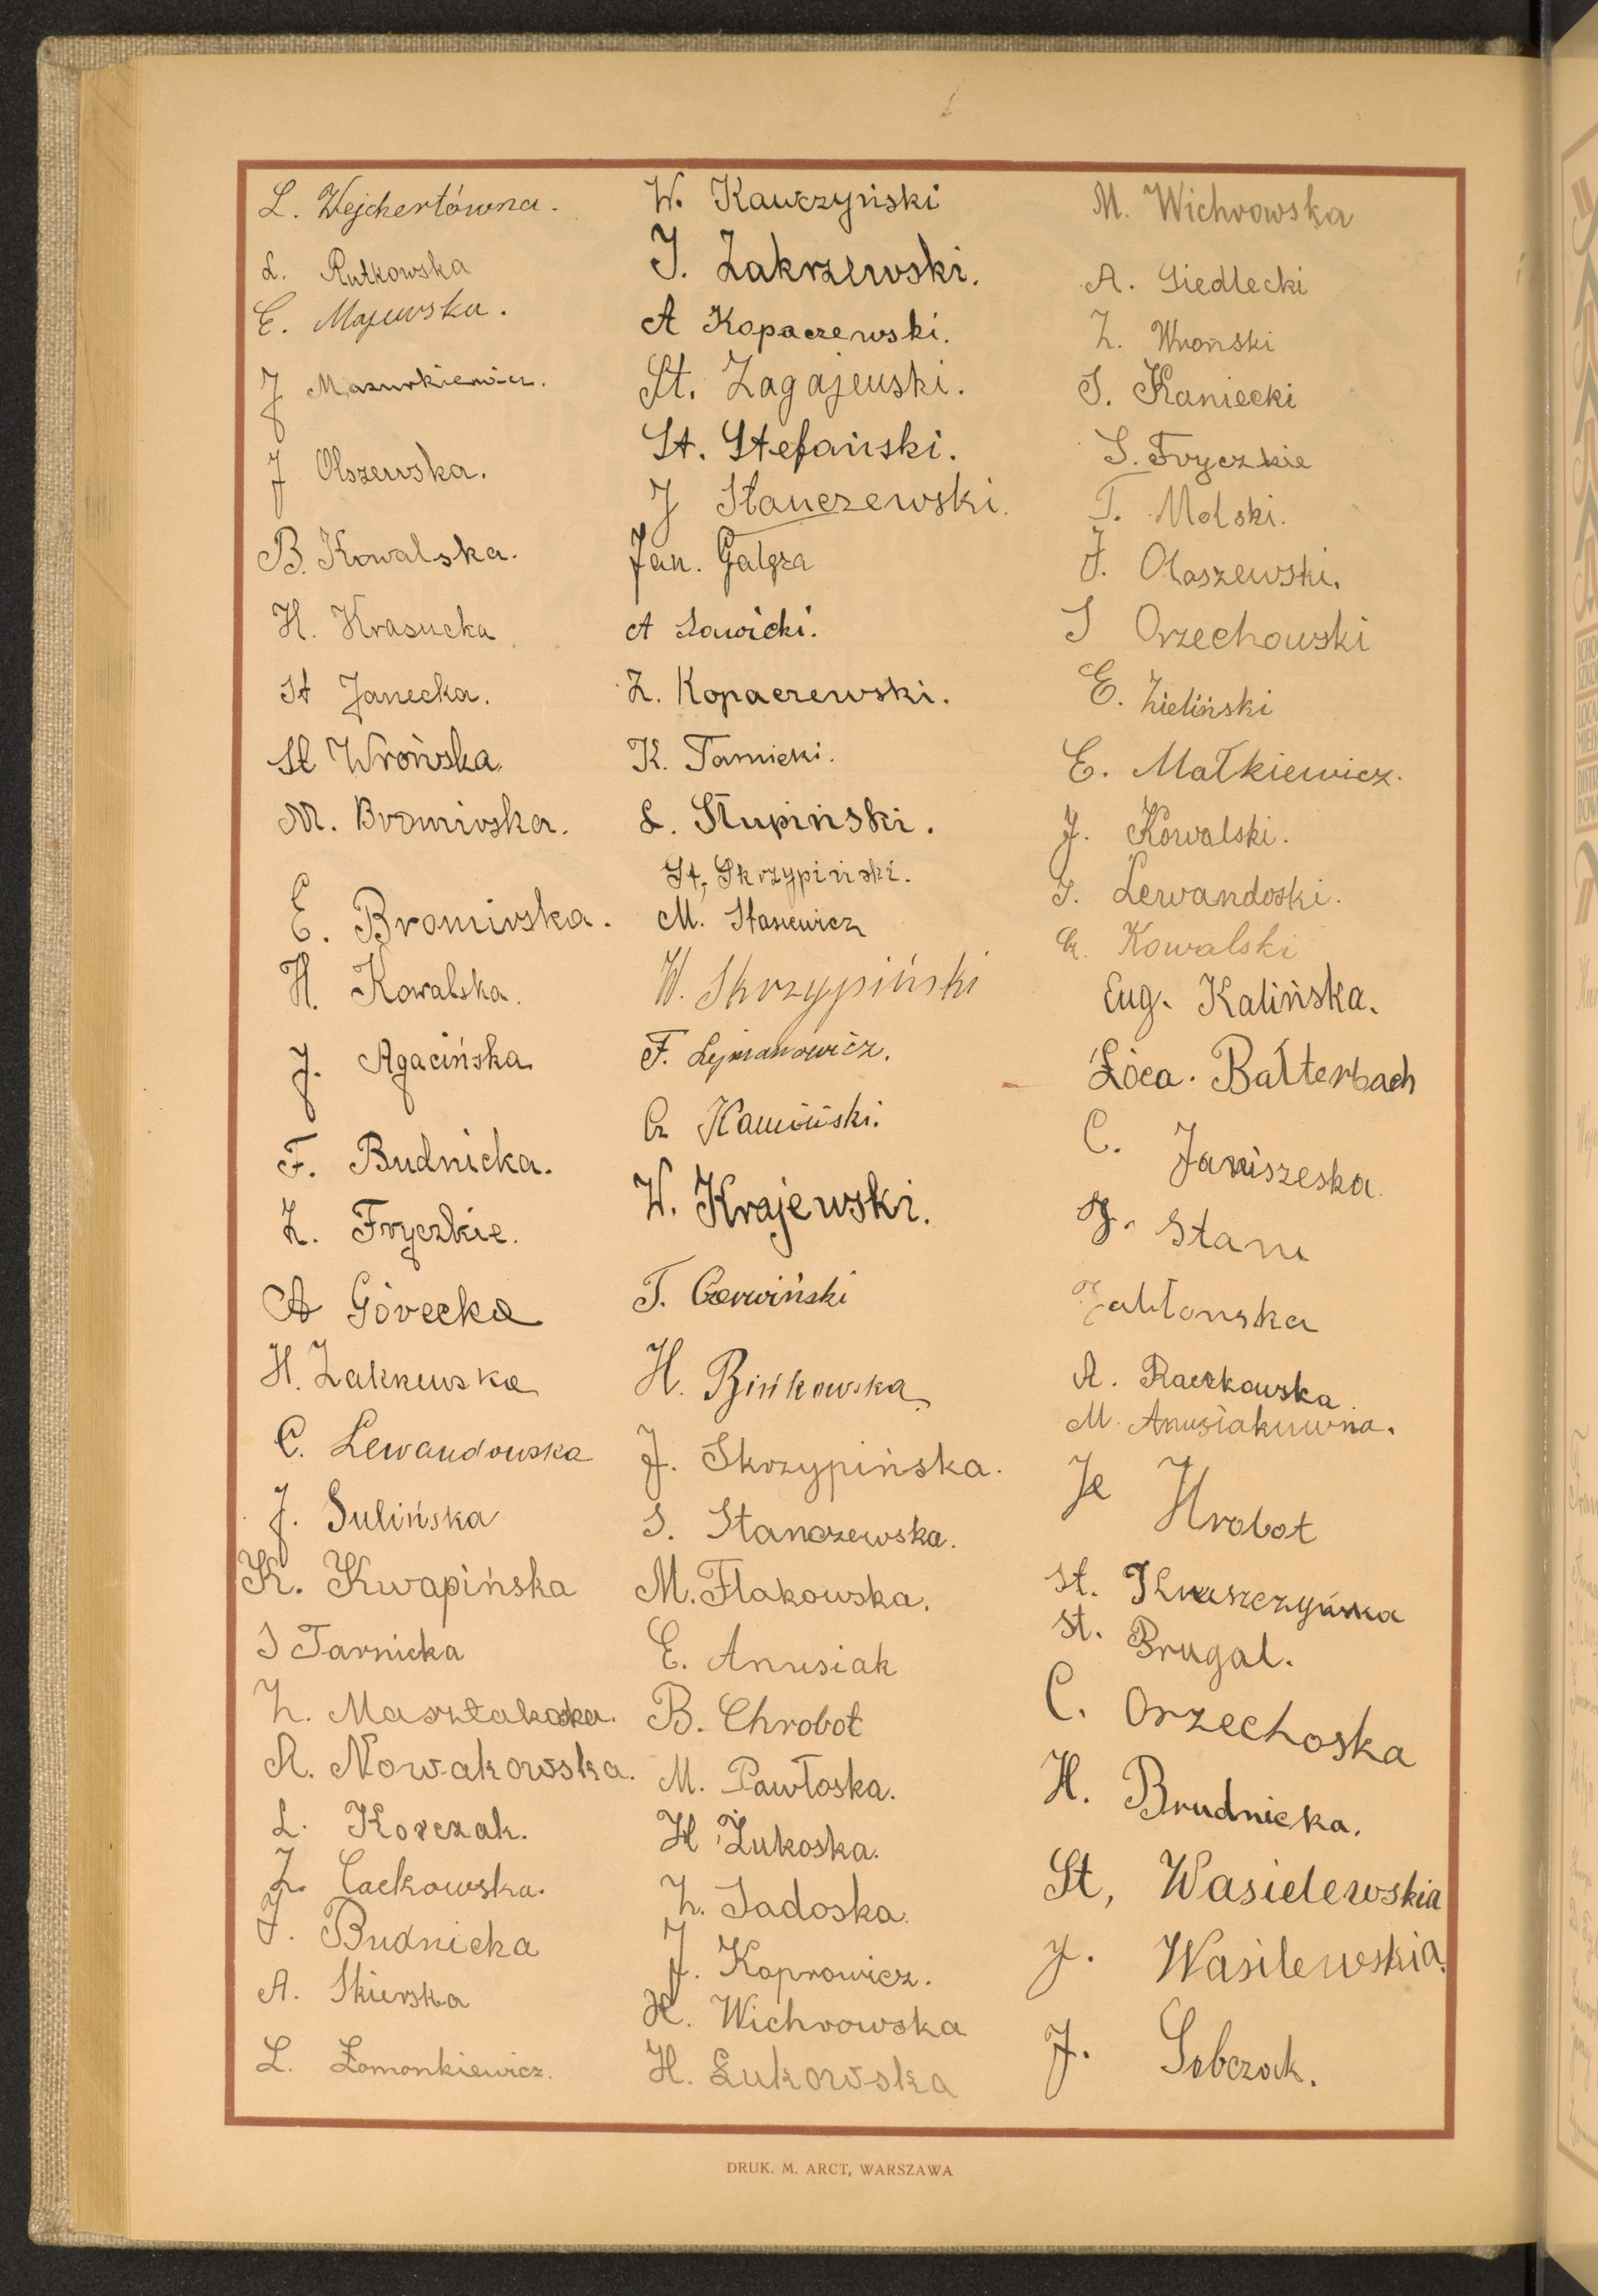 L. Wejchertówna.
L. Rutkowska
E. Majewska.
J Mazurkiewicz.
J Olszewska.
B. Kowalska.
H. Krasucka
St Janecka.
Sł Wrońska
M. Bromirska.
E. Bromirska.
H. Kowalska.
J. Agacińska
F. Budnicka.
Z. Fryczkie.
A Górecka
H. Zakrzewska
C. Lewandowska
J. Sulińska
K. Kwapińska
J Tarnicka
Z. Masztakoska.
A. Nowakowska.
L. Korczak.
Z. Cackowska.
J. Budnicka
A. Skierska
L. Łomonkiewicz.
W. Kawczyński
J. Zakrzewski.
A Kopaczewski.
St. Zagajewski.
St. Stefański.
J Stanczewski.
Jan. Galęza
A Sawicki.
Z. Kopaczewski.
K. Tarnicki.
L. Słupiński.
St. Skrzypiński.
M. Stasiewicz
W. Skrzypiński
F. Lejmanowicz.
Cz Kamiński.
W. Krajewski.
T. Czerwiński
H. Bińkowska
J. Skrzypińska.
S. Stanczewska.
M. Flakowska.
E. Anusiak
B. Chrobot
M. Pawłoska.
H Żukoska.
Z. Sadoska.
J. Koprowicz.
H. Wichrowska
H. Łukowska
M. Wichrowska
A. Siedlecki
Z. Wroński
S. Kaniecki
S. Fryczkie
T. Molski.
J. Olaszewski.
S Orzechowski
E. Zieliński
E. Małkiewicz.
J. Kowalski.
J. Lewandoski.
Cz. Kowalski
Eug. Kalińska.
Lóca. Balterbach
C. Janiszeska
J. Stani
Jabłonska
A. Raczkowska
M. Anusiakuwna.
Je Hrobot
St. Kruszczyńska
St. Brugal.
C. Orzechoska
H. Brudnicka.
St, Wasielewskia
J. Wasilewskia.
J. Sobczak.
DRUK. M. ARCT, WARSZAWA